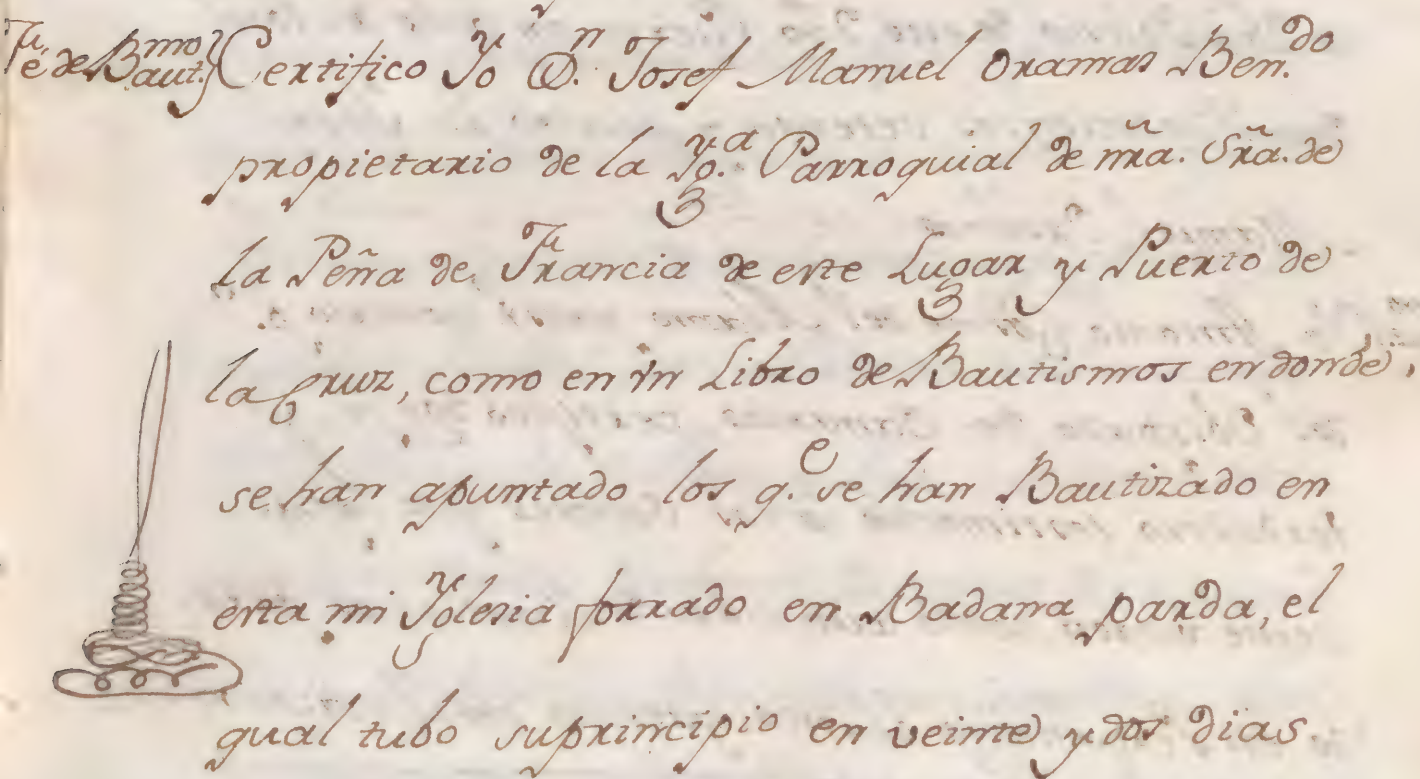 Fe de Baut.mo} Certifico Yo D.n Josef Manuel Oramas Ben.do
propietario de la Yg.a Parroquial de ñra. Sra. de
la Peña de Francia de este Lugar y Puerto de
la Cruz, como en vn Libro de Bautismos en donde,
se han apuntado los q.e se han Bautizado en
esta mi Yglesia forrado en Badana parda, el
qual tubo su principio en veinte y dos dias.